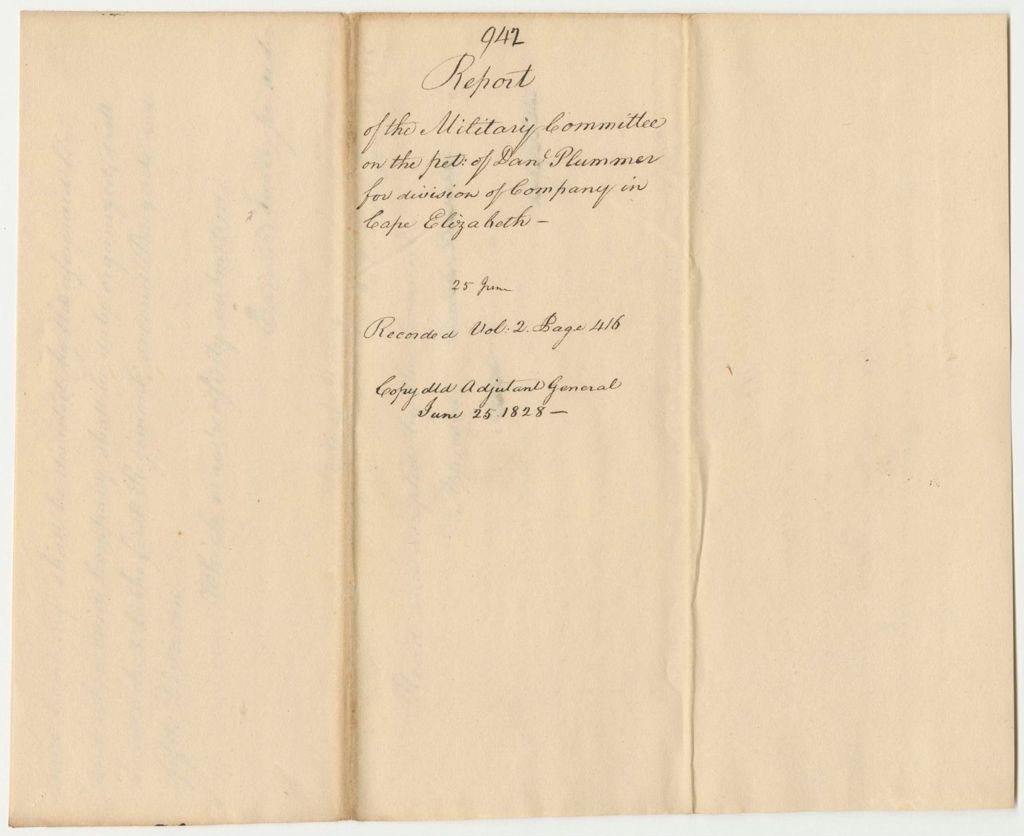 942
Report
of the Military Committee
on the pet: of Danl Plummer
for division of Company in
Cape Elizabeth –
25 June
Recorded Vol: 2. Page 416
Copy dld Adjutant General
June 25. 1828 –